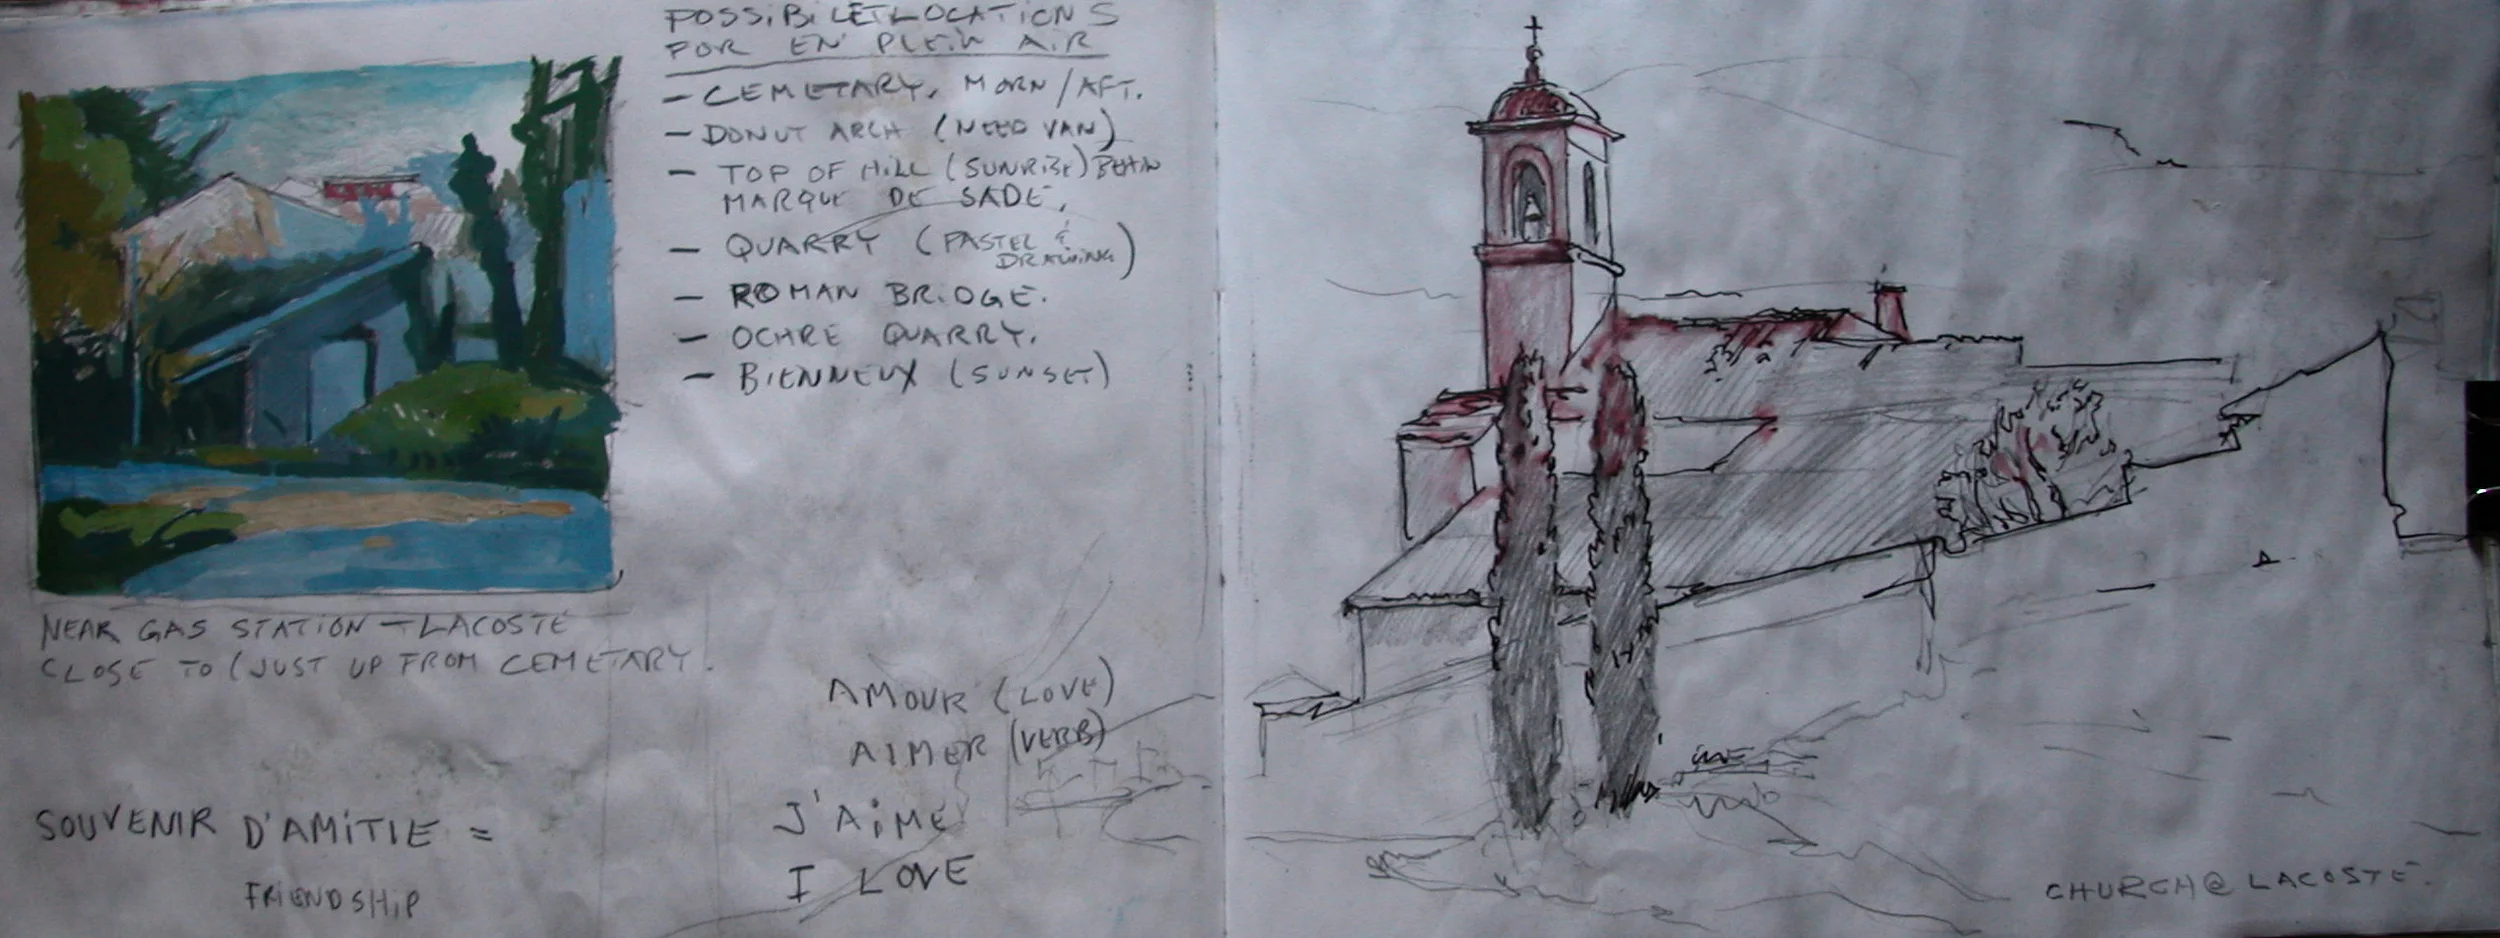 POSSIBLE LOCATIONS
FOR EN PLEIN AIR
- CEMETARY, MORN/AFT.
- DONUT ARCH (NEED VAN)
- TOP OF HILL (SUNRISE)
MARQUE DE SADE,
- QUARRY (PASTEL &
DRAWING)
- ROMAN BRIDGE.
- OCHRE QUARRY.
- BIENNEUX (SUNSET)
NEAR GAS STATION - LACOSTE
CLOSE TO (JUST UP FROM CEMETARY.
AMOUR (LOVE)
AIMER (VERB)
SOUVENIR D'AMITIE =
FRIENDSHIP
J'AIME
I LOVE
CHURCH @ LACOSTE.